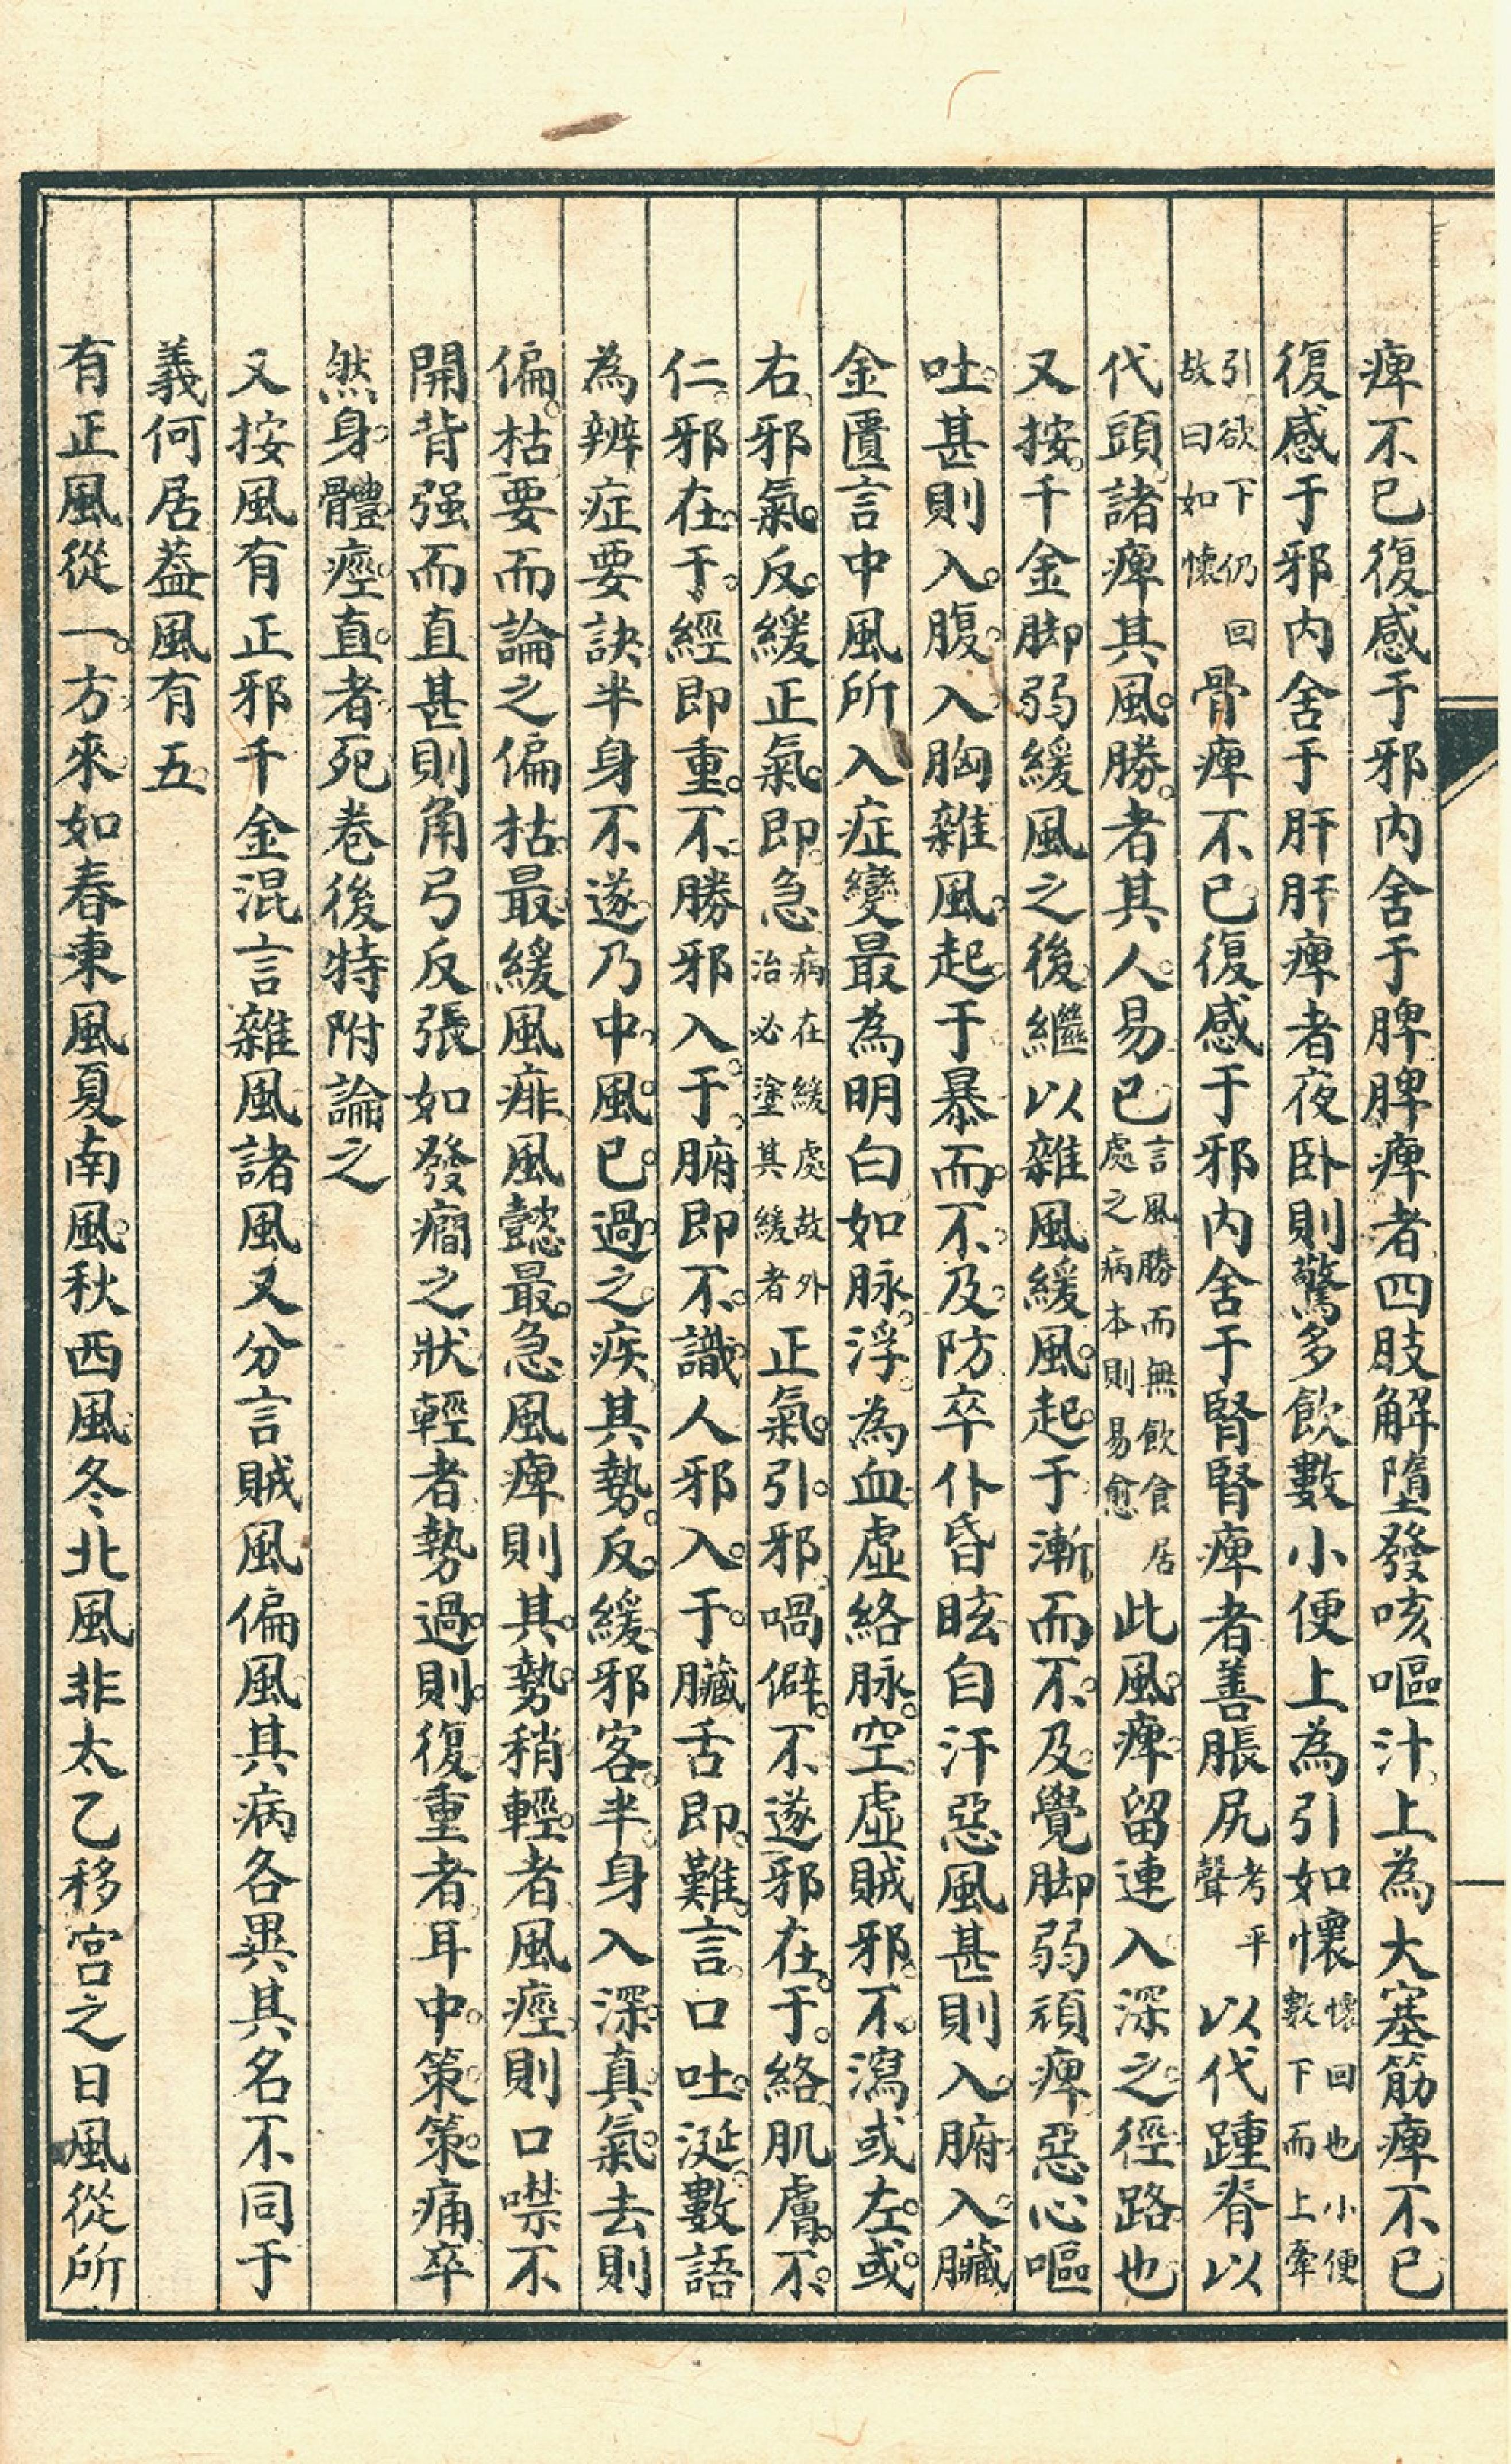 痺不已復感于邪内舍于脾脾痺者四肢解墮發咳嘔汁上為大塞筋痺不已
復感于邪内舍于肝肝痺者夜卧則驚多飲數小便上為引如懷懷回也小便數下而上牽
引欲下仍回故曰如懷骨痺不已復感于邪内舍于腎腎痺者善脹尻考平聲以代踵脊以
代頭諸痺其風勝者其人易已言風勝而無飲食居處之病本則易愈此風痺留連入深之徑路也
又按千金脚弱緩風之後繼以雜風緩風起于漸而不及覺脚弱頑痺惡心嘔
吐甚則入腹入胸雜風起于暴而不及防卒仆昏眩自汗惡風甚則入腑入臟
金匱言中風所入症變最為明白如脉浮為血虛絡脉空虛賊邪不瀉或左或
右邪氣反緩正氣即急病在緩處故外治必塗其緩者正氣引邪喎僻不遂邪在于絡肌膚不
仁邪在于經即重不勝邪入于腑即不識人邪入于臟舌即難言口吐涎數語
為辨症要訣半身不遂乃中風已過之疾其勢反緩邪客半身入深真氣去則
偏枯要而論之偏枯最緩風痱風懿最急風痺則其勢稍輕者風痙則口噤不
開背强而直甚則角弓反張如發癎之狀輕者勢過則復重者耳中策策痛卒
然身體痙直者死卷後特附論之
又按風有正邪千金混言雜風諸風又分言賊風偏風其病各異其名不同于
義何居葢風有五
有正風從一方來如春東風夏南風秋西風冬北風非太乙移宮之日風從所